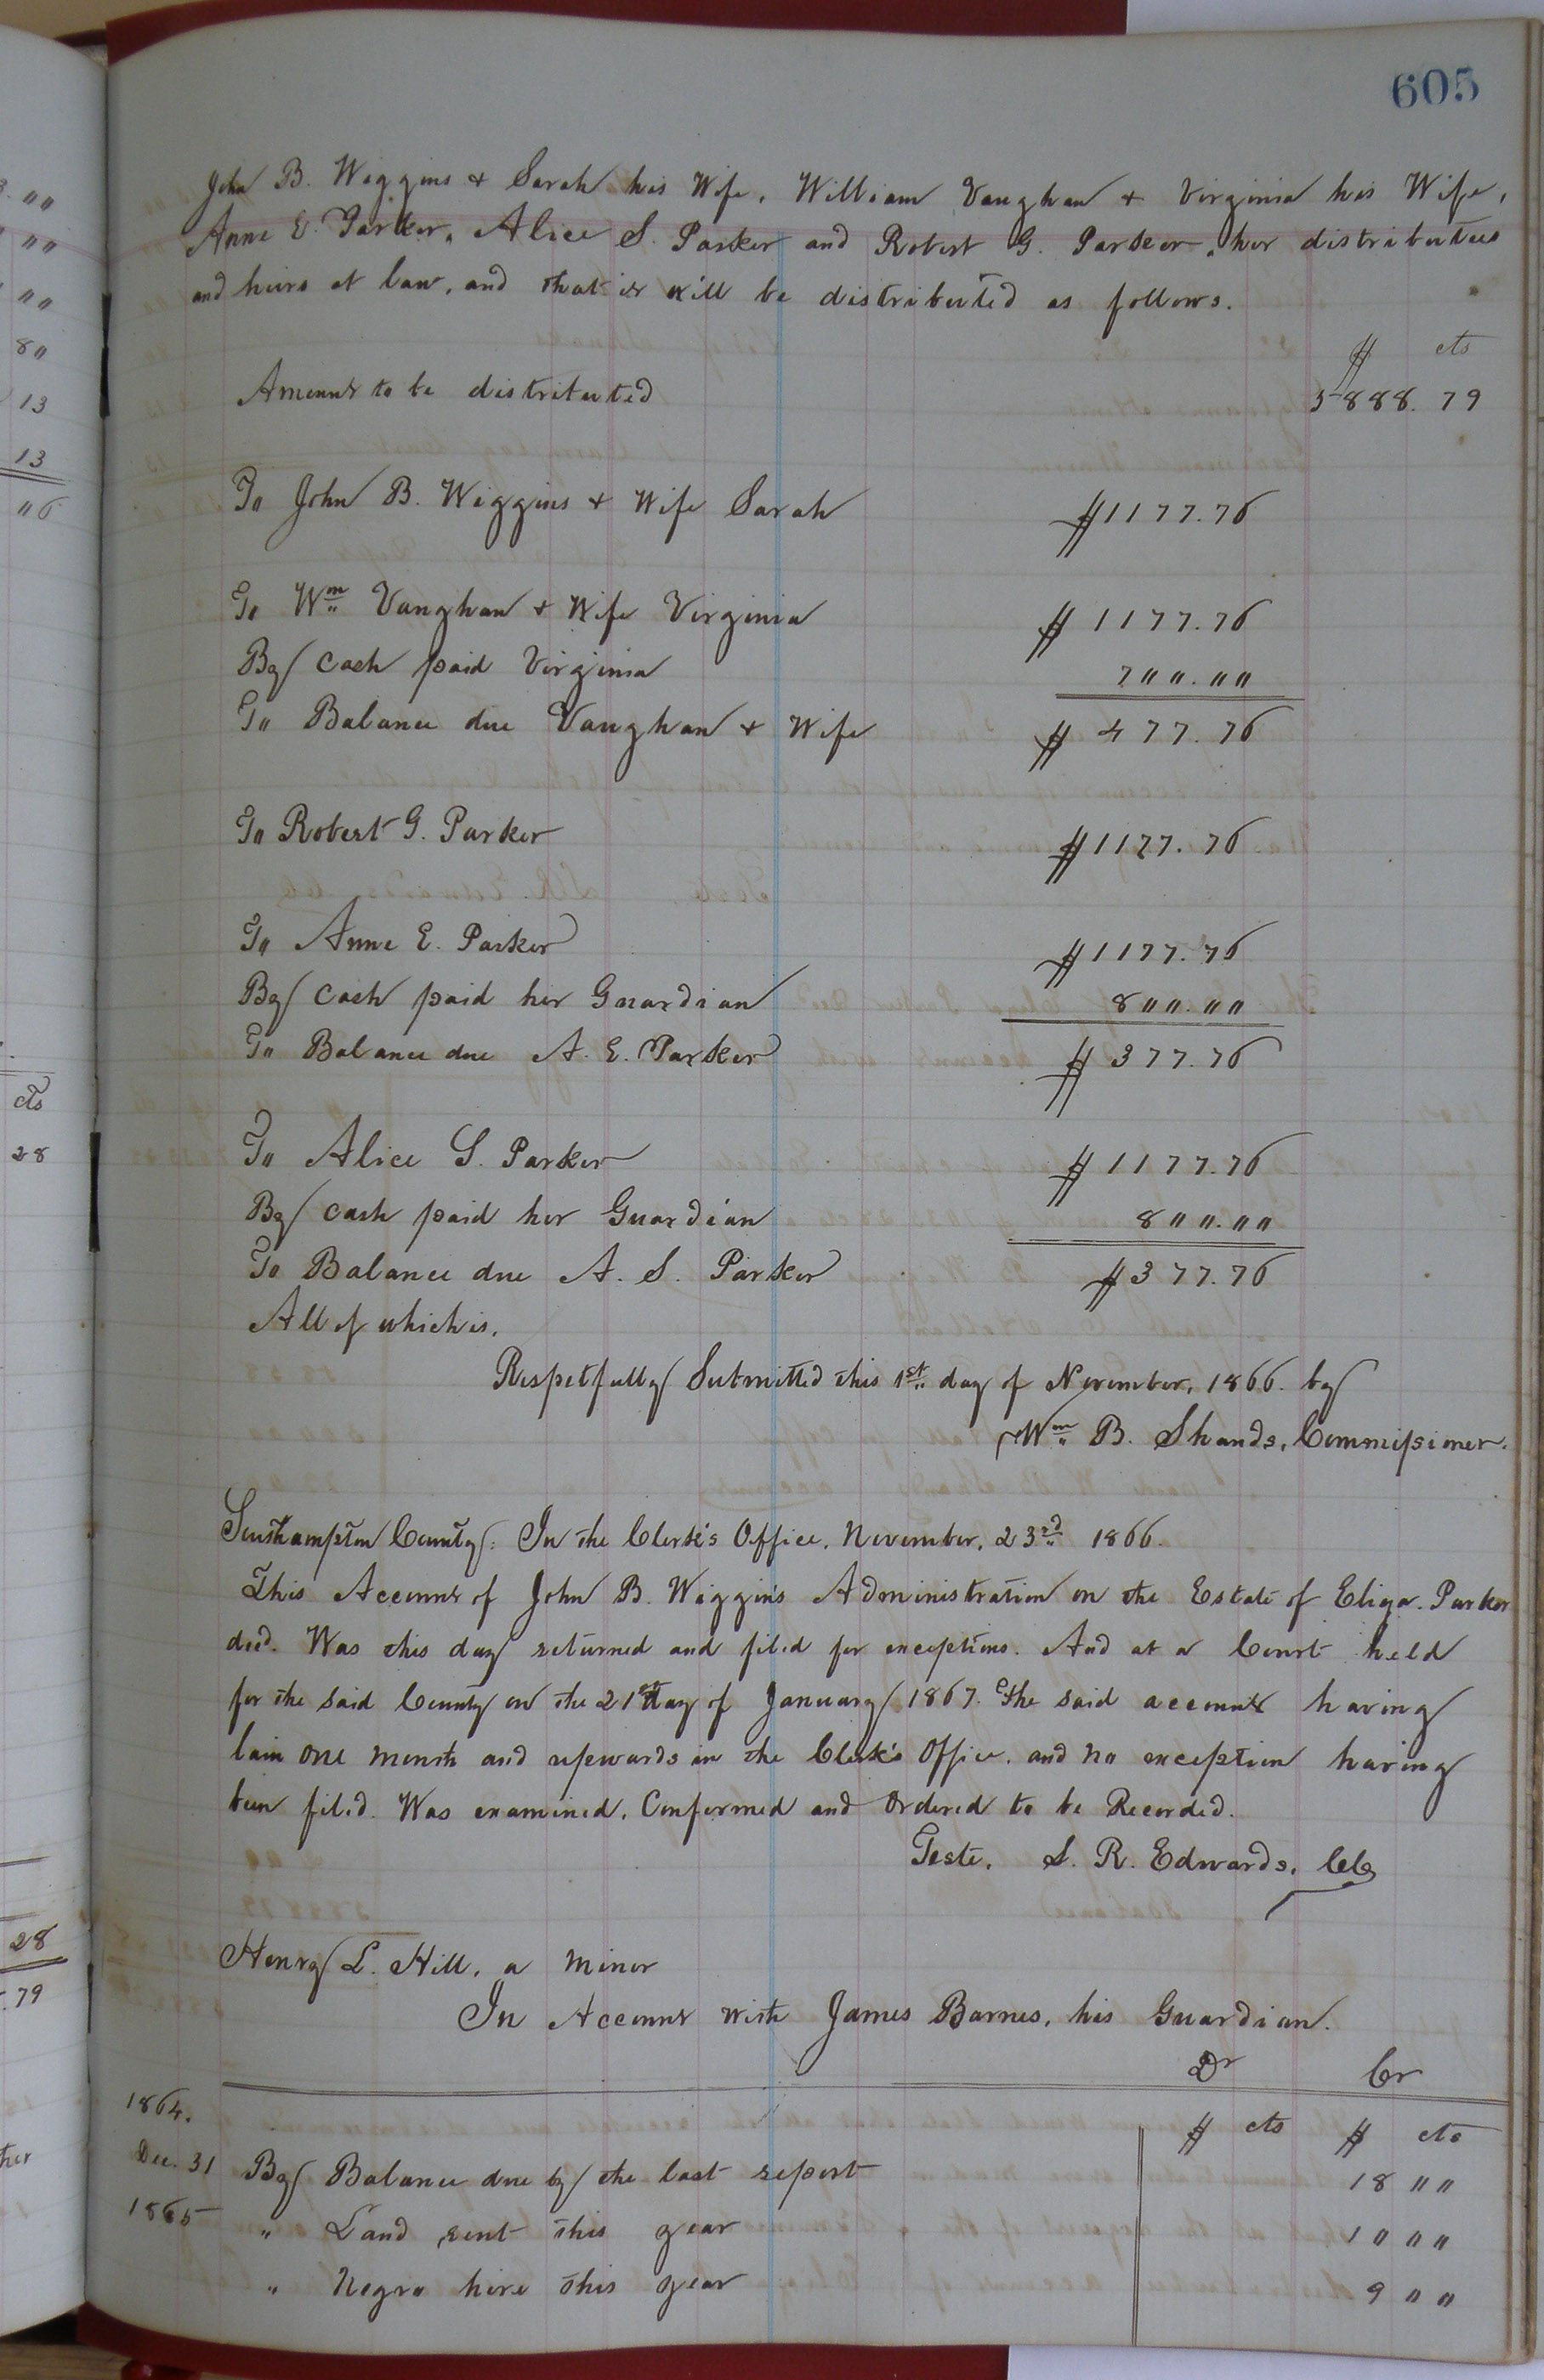 605
John B. Wiggins & Sarah his Wife, William Vaughan & Virginia his Wife,
Anne E. Parker, Alice S. Parker and Robert G. Parker, her distributees
and heirs at law, and that it will be distributed as follows.
$ cts
Amount to be distributed 5888. 79
To John B. Wiggins & Wife Sarah $1177.76
To Wm Vaughan & Wife Virginia $1177.76
By cash paid Virginia 700.00
To Balance due Vaughan & Wife $477.76
To Robert G. Parker $1177.76
To Anne E. Parker $1177.76
By Cash paid her Guardian 800.00
To Balance due A. E. Parker $377.76
To Alice S. Parker $1177.76
By Cash paid her Guardian 800.00
To Balance due A. S. Parker $377.76
All of which is,
Respetfully Submitted this 1st day of November, 1866. by
Wm B. Shands, Commissioner.
Southampton County: In the Clerk's Office, November, 23rd 1866.
This Account of John B. Wiggins Administration on the Estate of Eliza. Parker
decd. Was this day returned and filed for exceptions. And at a Court held
for the said County on the 21st day of January 1867. The said account having
lain one month and upwards in the Clerk's Office, and no exception having
been filed. Was examined, Confirmed and Ordered to be Recorded.
Teste, L. R. Edwards, Clk
Henry L. Hill, a minor
In Account with James Barnes, his Guardian.
Dr Cr
1864. $ cts $ cts
Dec. 31 By Balance due by the last report 18 00
1865 " Land rent this year 10 00
" Negro hire this year 9 00
80
13
13
cts
28
28
79